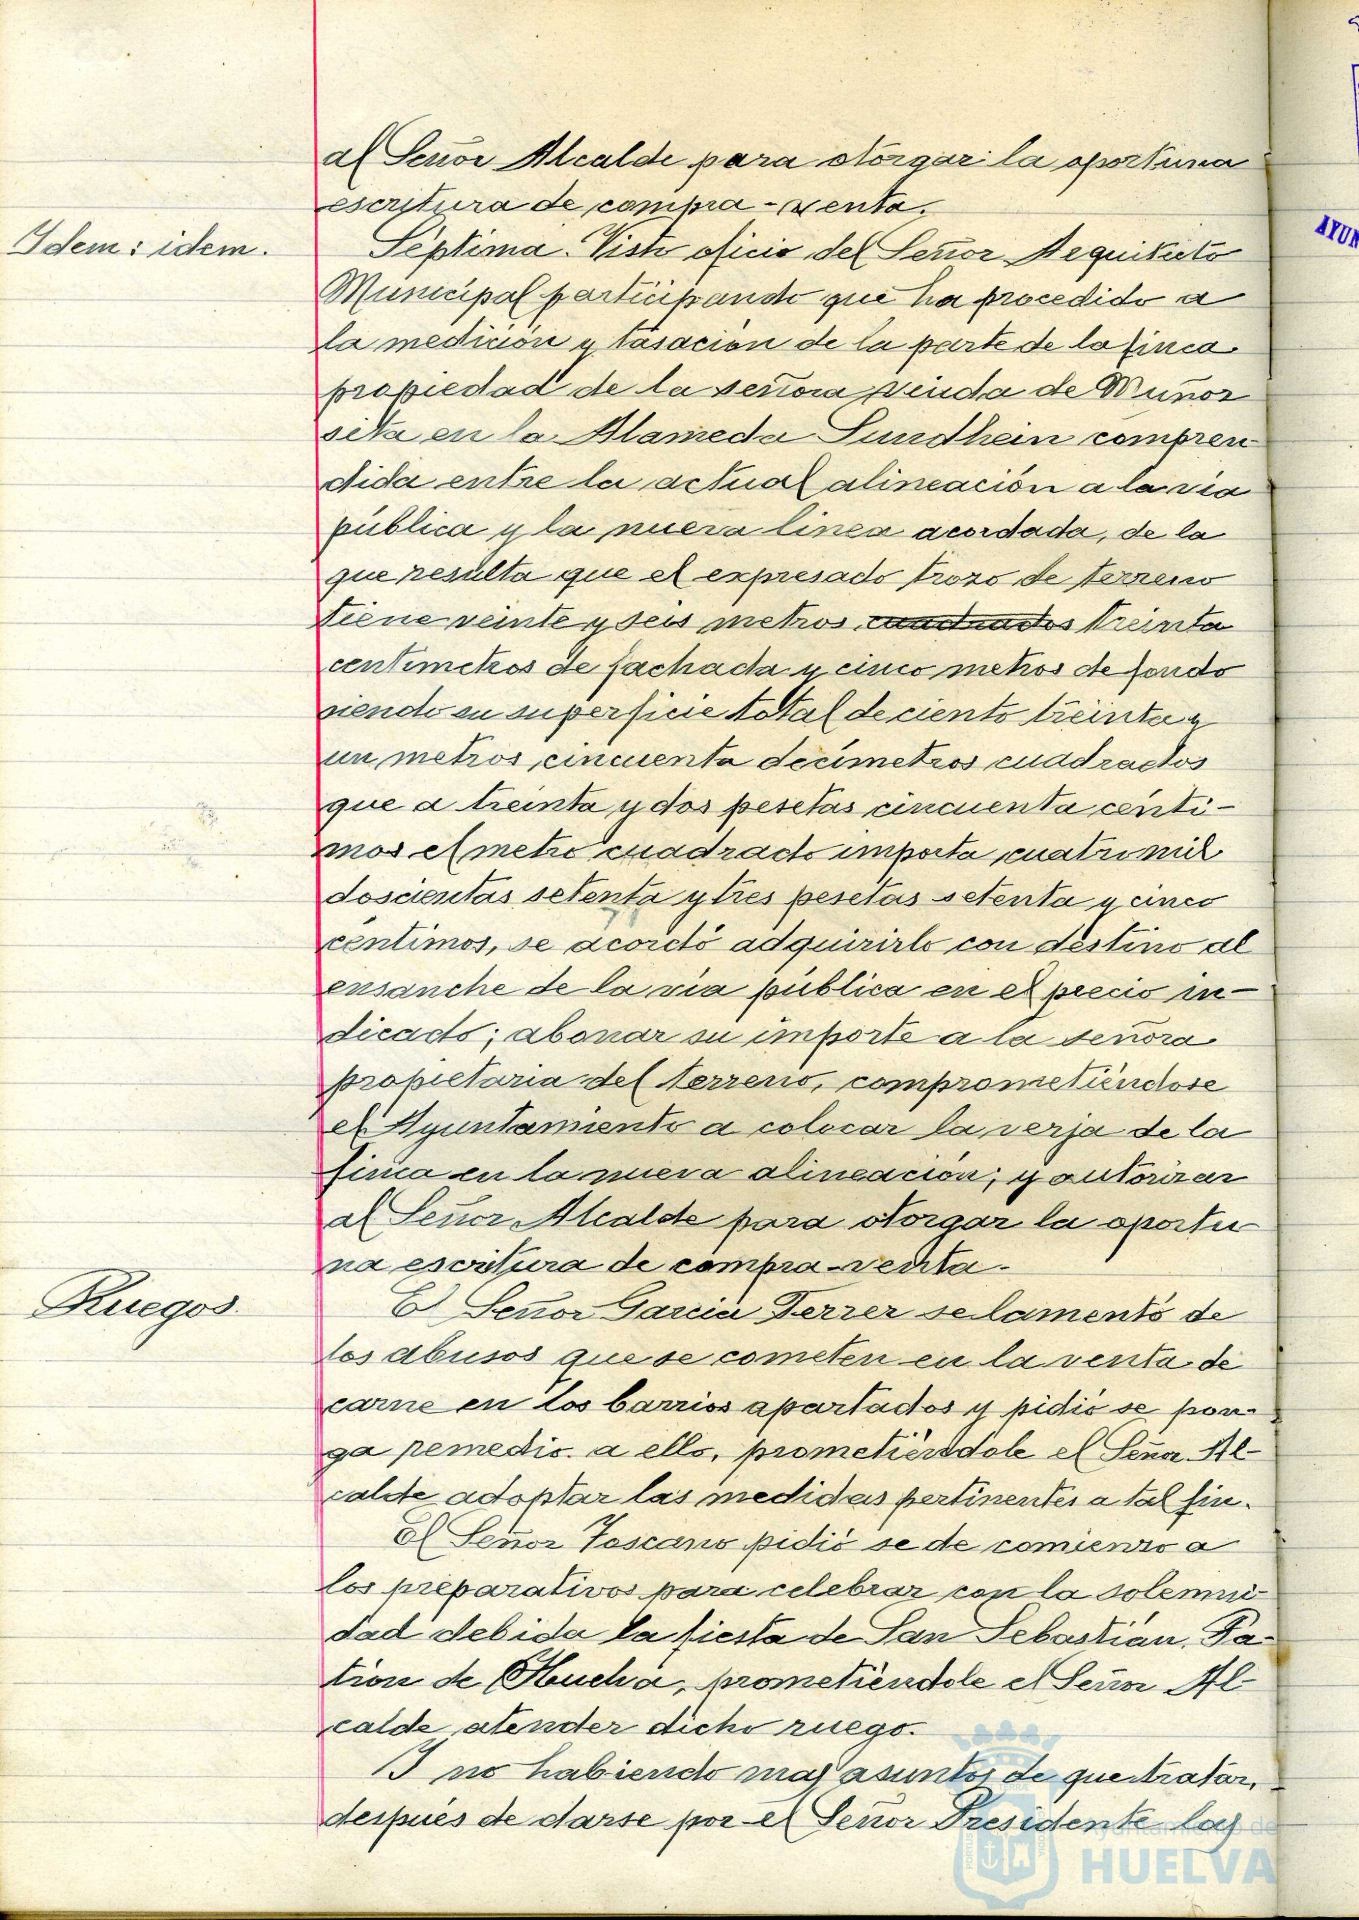 al Señor Alcalde para otorgar la oportuna
escritura de compra-venta.
Idem: idem.
Séptima. Visto oficio del Señor Arquitecto
Municipal participando que ha procedido a
la medición y tasación de la parte de la finca
propiedad de la señora viuda de Muñoz
sita en la Alameda Sundhein compren-
dida entre la actual alineación a la via
pública y la nueva linea acordada, de la
que resulta que el expresado trozo de terreno
tiene veinte y seis metros cuadrados treinta
centimetros de fachada y cinco metros de fondo
siendo su superficie total de ciento treinta y
un metros cincuenta decímetros cuadrados
que a treinta y dos pesetas cincuenta cénti-
mos el metro cuadrado importa cuatro mil
doscientas setenta y tres pesetas setenta y cinco
céntimos, se acordó adquirirlo con destino al
ensanche de la via pública en el precio in-
dicado; abonar su importe a la señora
propietaria del terreno, comprometiéndose
el Ayuntamiento a colocar la verja de la
finca en la nueva alineación; y autorizar
al Señor Alcalde para otorgar la oportu
na escritura de compra-venta.
Ruegos.
El Señor Garcia Ferrer se lamentó de
los abusos que se cometen en la venta de
carne en los barrios apartados y pidió se pon-
ga remedio a ello, prometiéndole el Señor Al-
calde adoptar las medidas pertinentes a tal fin.
El Señor Toscano pidió se de comienzo a
los preparativos para celebrar con la solemni-
dad debida la fiesta de San Sebastián, Pa-
trón de Huelva, prometiéndole el Señor Al-
calde atender dicho ruego.
Y no habiendo mas asuntos de que tratar,
después de darse por el Señor Presidente las
AYUN
Ayuntamiento de
HUELVA